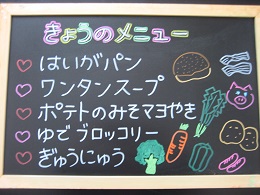 きょうのメニュー
はいがパン
ワンタンスープ
ポテトのみそマヨやき
ゆでブロッコリー
ぎゅうにゅう